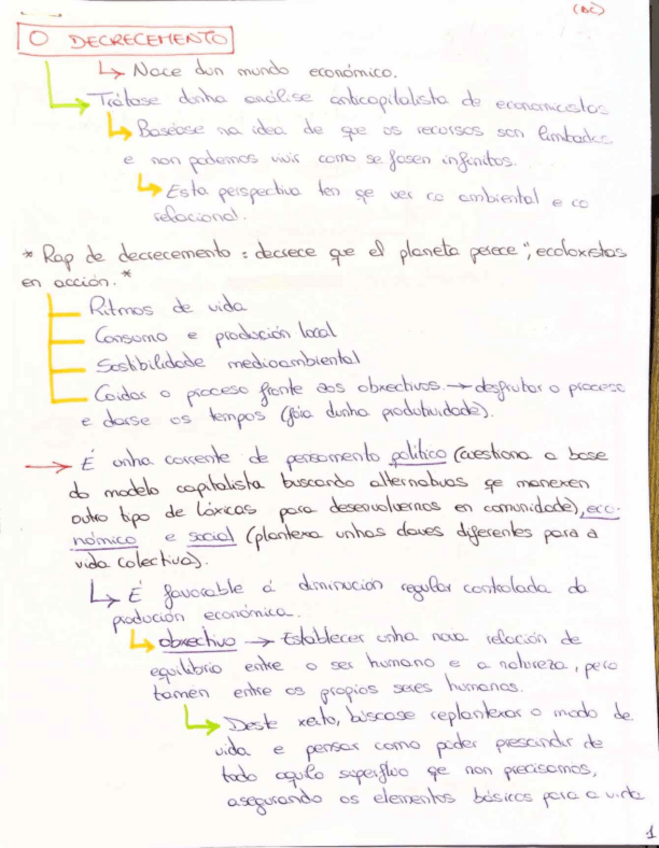 (BC)
O DECRECEMENTO
↳ Nace dun mundo económico.
Trátase dunha análise anticapitalista de economicistas
↳ Baséase na idea de que os recursos son limitados
e non podemos vivir como se fosen infinitos.
↳ Esta perspectiva ten qe ver co ambiental e co
relacional.
* Rap de decrecemento : decrece que el planeta perece", ecoloxistas
en acción. *
Ritmos de vida
Consumo e produción local
Sostibilidade medioambiental
Coidar o proceso fronte aos obxectivos. → desfrutar o proceso
e darse os tempos (fóra dunha produtividade).
→ É unha corrente de pensamento político (cuestiona a base
do modelo capitalista buscando alternativas qe manexen
outro tipo de lóxicas para desenvolvernos en comunidade), eco-
nómico e social (plantexa unhas claves diferentes para a
vida colectiva).
↳ É favorable á diminución regular controlada da
produción económica.
↳ obxectivo → Establecer unha nova relación de
equilibrio entre o ser humano e a natureza, pero
tamén entre os propios seres humanos.
↳ Deste xeito, búscase replantexar o modo de
vida e pensar como poder prescindir de
todo aquilo superfluo qe non precisamos,
asegurando os elementos básicos para a vida
1